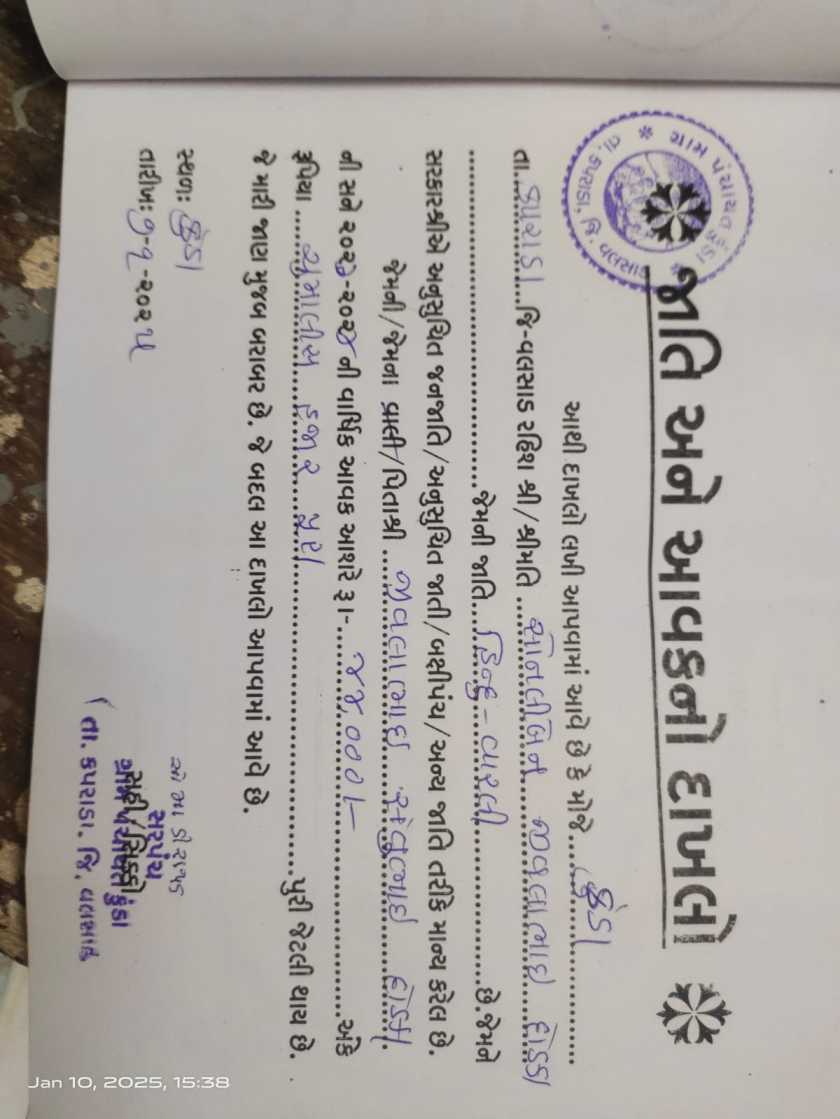 જાતિ અને આવકનો દાખલો
આથી દાખલો લખી આપવામાં આવે છે કે મોજે..... કુંડા
તા..... કપરાડા..... જિ-વલસાડ રહિશ શ્રી/શ્રીમતિ ..... જીવલાભાઇ
..... જેમની જાતિ..... હિન્દુ - વારલી ..... છે.જેમને
સરકારશ્રીએ અનુસુચિત જનજાતિ/અનુસુચિત જાતી/બક્ષીપંચ/અન્ય જાતિ તરીકે માન્ય કરેલ છે.
જેમની/જેમના વાલી/પિતાશ્રી ..... જીવલાભાઇ
ની સને ૨૦૨૩-૨૦૨૪ ની વાર્ષિક આવક આશરે રૂા-..... ૪૪,૦૦૦/- ..... અંકે
રૂપિયા ..... ચુમાલીસ હજાર પુરા ..... પુરી જેટલી થાય છે.
જે મારી જાણ મુજબ બરાબર છે. જે બદલ આ દાખલો આપવામાં આવે છે.
સ્થળ: કુંડા
તારીખ: ૭-૧-૨૦૨૫
સહી/સિક્કો
સરપંચ
ગ્રામ પંચાયત કુંડા
તા. કપરાડા. જિ. વલસાડ
Jan 10, 2025, 15:38